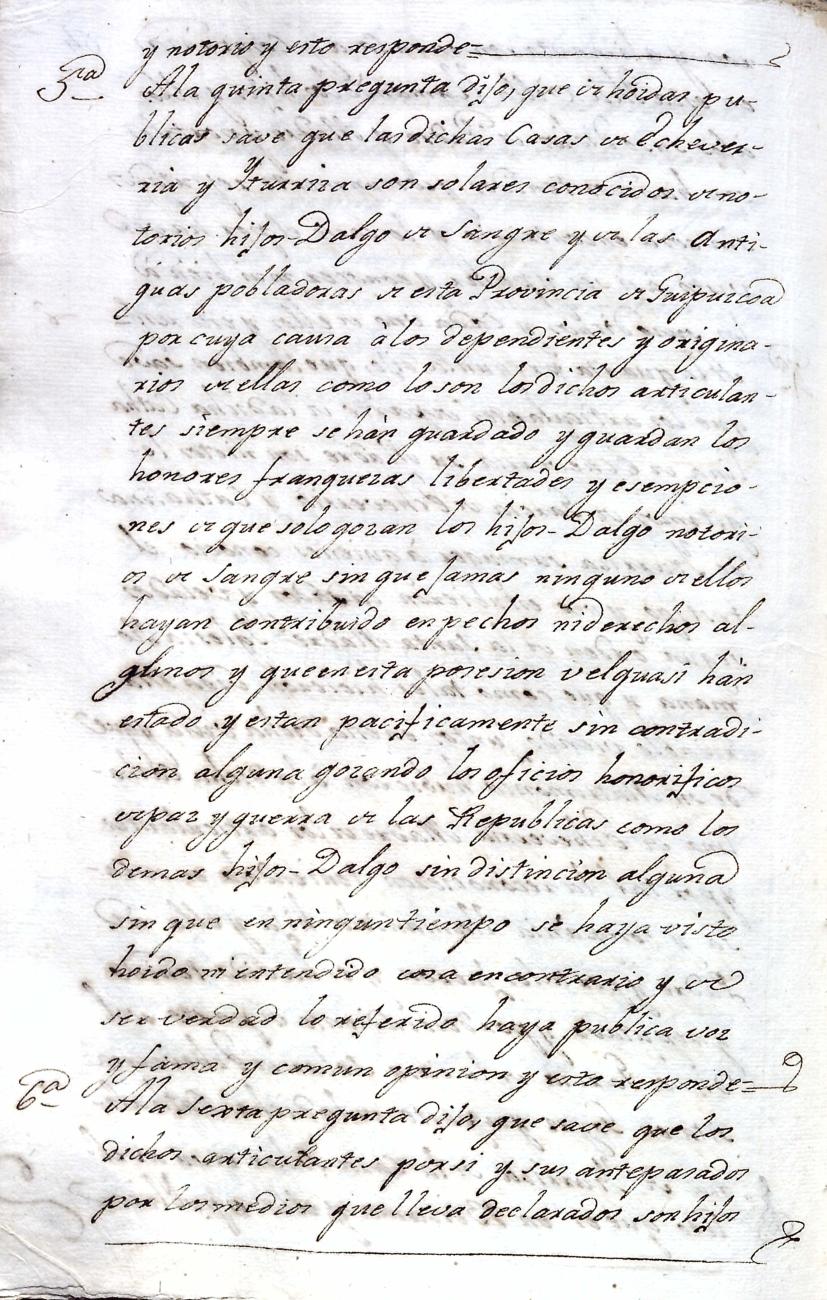 y notorio y esto responde=
5ª
Ala quinta pregunta dijo, que de hoidas pu-
blicas save que las dichas Casas de Echever-
ria y Yturriza son solares conocidos de no-
torios hijos-Dalgo de Sangre y de las Anti-
guas pobladoras de esta Provincia de Guipuzcoa
por cuya causa à los dependientes y origina-
rios de ellas como lo son los dichos articulan-
tes siempre se hàn guardado y guardan los
honores franquezas libertades y esempcio-
nes de que solo gozan los hijos-Dalgo notori-
os de Sangre sin que Jamas ninguno de ellos
hayan contribuido en pechos ni derechos al-
gunos y que en esta posesion vel quasi hàn
estado y estan pacificamente sin contradi-
cion alguna gozando los oficios honorificos
de paz y guerra de las Republicas como los
demas hijos-Dalgo sin distincion alguna
sin que en ningun tiempo se haya visto
hoido ni entendido cosa en contrario y de
ser verdad lo referido haya publica voz
y fama y comun opinion y esto responde=
6ª
Ala Sexta pregunta dijo, que save que los
dichos articulantes por si y sus antepasados
por los medios que lleva declarados son hijos